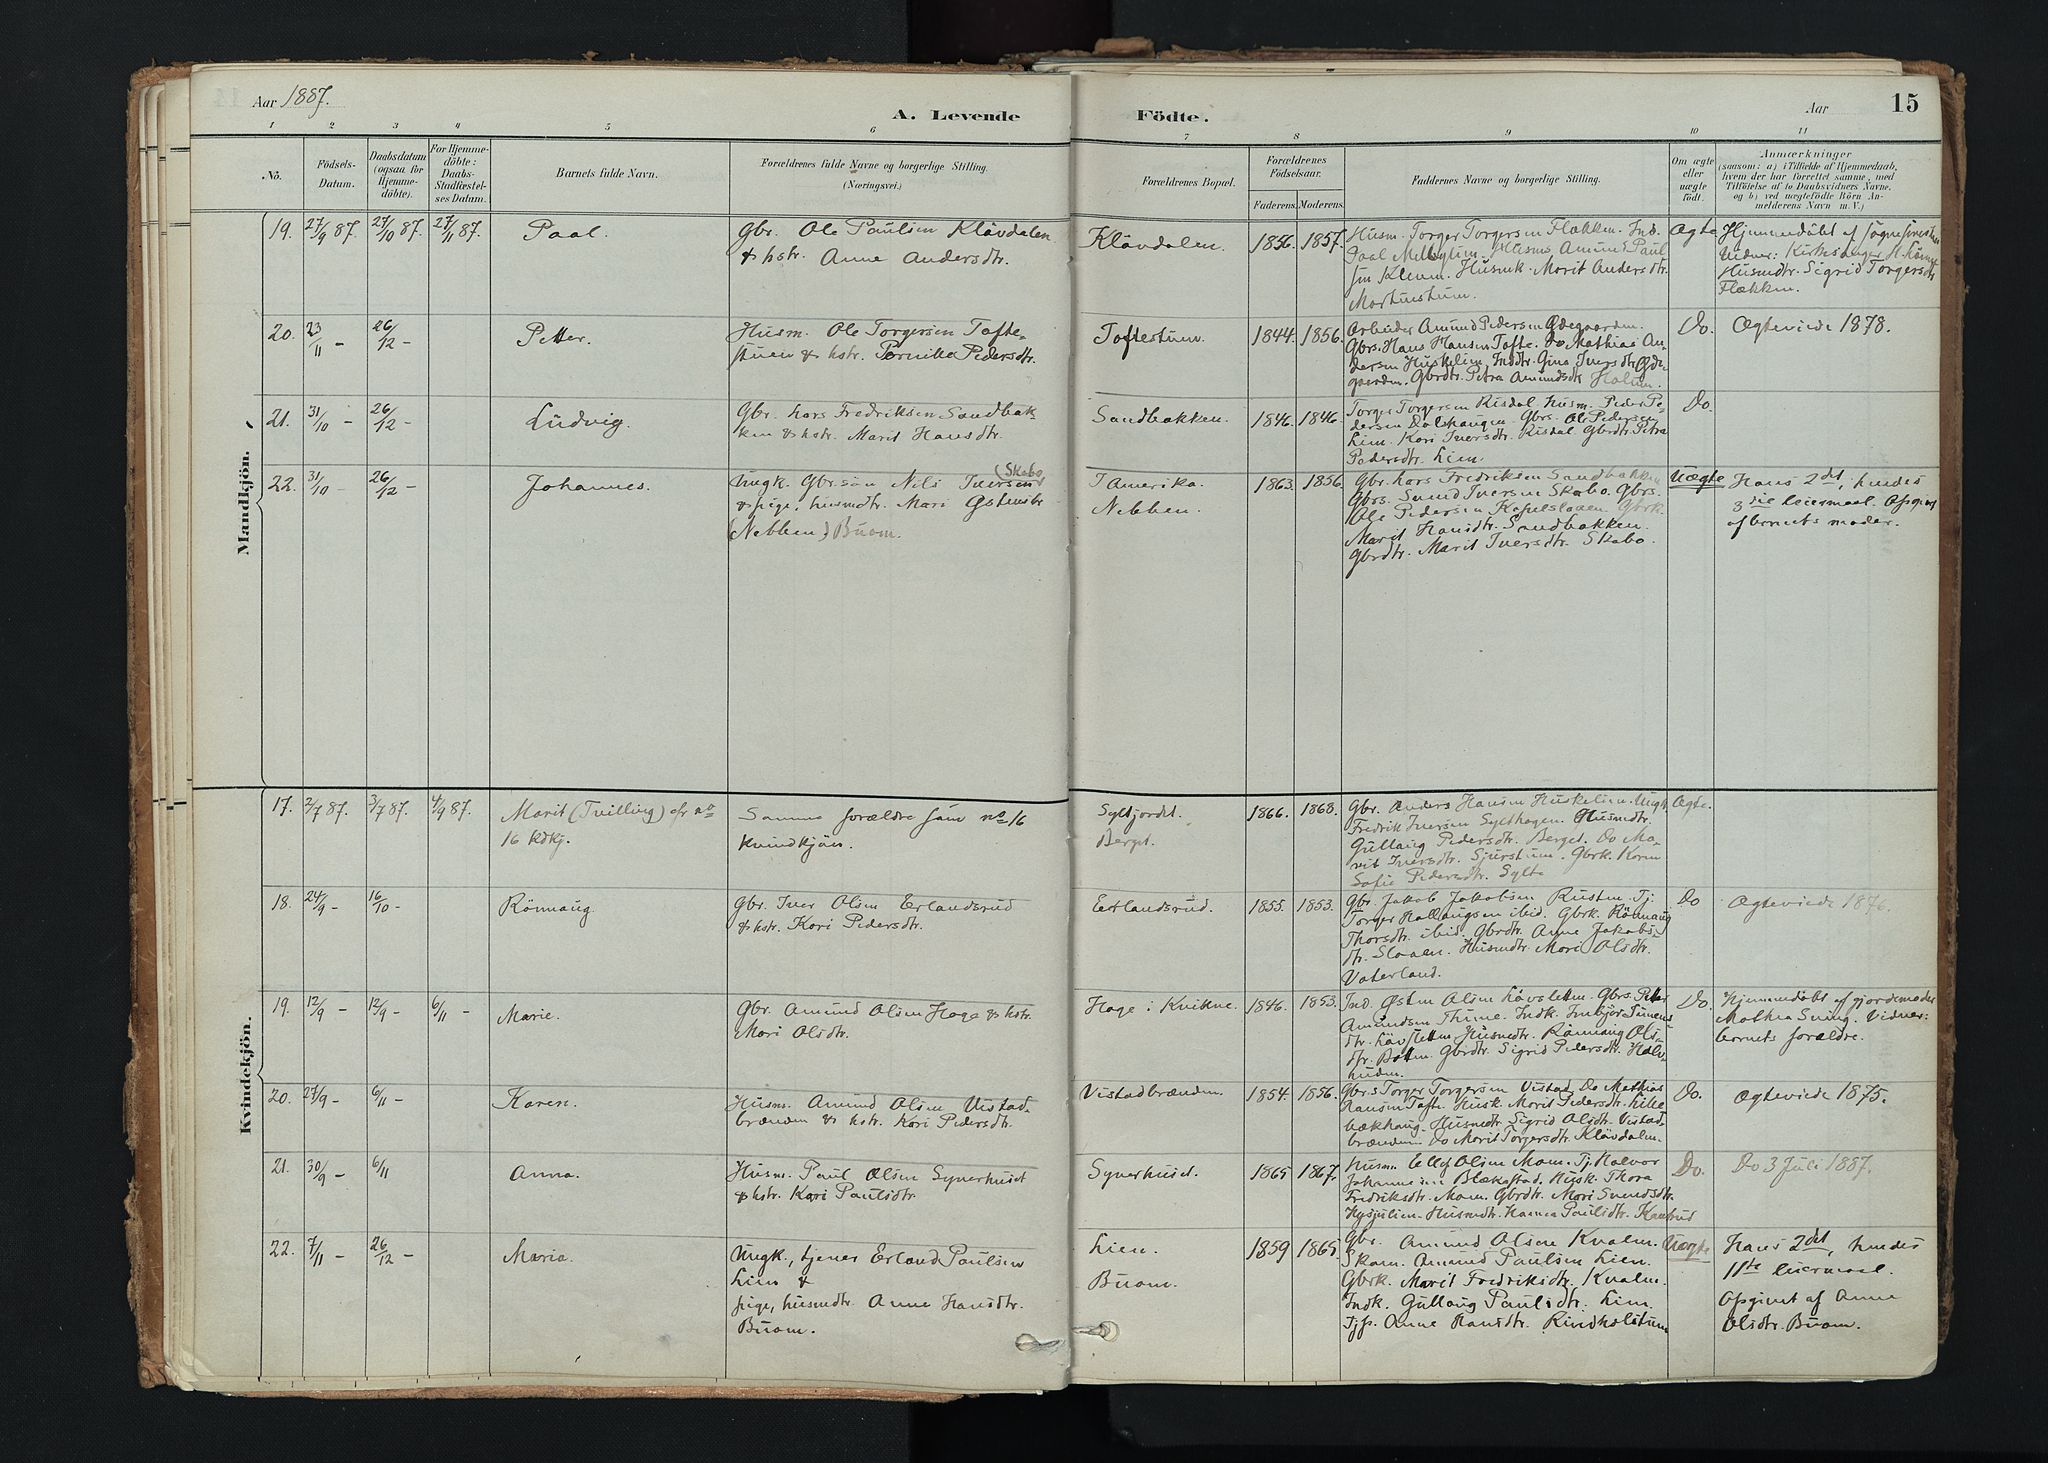 Aar 1887.
A. Levende
Födte.
Aar
15
1 2 3 4 5 6 7 8 9 10 11
No.
Födsels-
Datum.
Daabsdatum
(ogsaa for
Hjemme-
döbte).
For Hjemme-
döbte:
Daabs-
Stadfæstel-
ses Datum.
Barnets fulde Navn.
Forældrenes fulde Navne og borgerlige Stilling.
(Næringsvei.)
Forældrenes Bopæl.
Forældrenes
Födselsaar.
Faderens. Moderens.
Faddernes Navne og borgerlige Stilling.
Om ægte
eller
uægte
født.
Anmærkninger
(saasom: a) i Tilfælde af Hjemmedaab,
hvem der har forrettet samme, med
Tilföielse af to Daabsvidners Navne,
og b) ved uægtefödte Börn An-
melderens Navn m. V.)
Mandkjön.
19. 27/9 87. 27/10 87. 27/11 87.
Paal.
Gbr. Ole Paulsen Klävdalen
& hstr. Anne Andersdtr.
Klävdalen.
1856. 1857.
Husm. Torger Torgersen Flækken. Ind.
Paal Husms Amund Paul
sen Klevm. Husmk. Marit Andersdtr.
Martinstuen.
Ægte
Hjemmedöbt af Sognepresten
Vidner: Kirkesanger
Husmdtr. Sigrid Torgersdtr
Flækken.
20. 23/11 - 26/12 -
Petter.
Husm. Ole Torgersen Tofte-
stuen & hstr. Pernille Pedersdtr.
Toftestuen.
1844. 1856.
Arbeider Amund Pedersen Ødegaarden.
Gbrs. Hans Hansen Tofte. Do Mathias An-
dersen Huskelien. Inddtr. Gina Iversdtr. Øde-
gaarden. Gbrdtr. Petra Amundsdtr Holen.
Do.
Ægteviede 1878.
21. 31/10 - 26/12 -
Ludvig.
Gbr. Lars Fredriksen Sandbak-
ken & hstr. Marit Hansdtr.
Sandbakken.
1846. 1846.
Torger Torgersen Risdal. Husm. Peder Pe-
dersen Dalshaugen. Gbrs. Ole Pedersen
Lien. Kari Iversdtr. Risdal. Gbrdtr. Petra
Pedersdtr. Lien.
Do.
22. 31/10 - 26/12 -
Johannes.
Ungk. Gbr.sön Nils Iversen (Skabo)
& pige, husmdtr. Mari Östensdtr
(Nebben) Buom.
I Amerika.
Nebben.
1863. 1856
Gbr. Lars Fredriksen Sandbakken
Gbrs. Svend Iversen Skabo. Gbrs.
Ole Pedersen Kapelslaaen. Gbrk.
Marit Hansdtr. Sandbakken.
Gbrdtr. Marit Iversdtr. Skabo.
Uægte
Hans 2det, hendes
3die leiermaal. Opgivet
af barnets moder.
Kvindekjön.
17. 2/7 87. 3/7 87. 4/9 87.
Marit (Tvilling) cfr no
16 kdkj.
Samme forældre som no 16
kvindkjön.
Syltjordet.
Berget.
1866. 1868.
Gbr. Anders Hansen Huskelien. Ungk.
Fredrik Iversen Sylthagen. Husmdtr.
Gullaug Pedersdtr. Berget. Do Ma-
rit Iversdtr. Sjurstuen. Gbrk. Karen
Sofie Pedersdtr. Sylte
Ægte.
18. 24/9 - 16/10 -
Rönnaug.
Gbr. Iver Olsen Erlandsrud
& hstr. Kari Pedersdtr.
Erlandsrud.
1855. 1853.
Gbr. Jakob Jakobsen Rusten. Tj.
Torger Hallaugsen ibid. Gbrk. Rönnaug
Thorsdtr. ibid. Gbrdtr. Anne Jakobs-
dtr. Slaaen. Husmdtr. Mari Olsdtr.
Vaterland.
Do
Ægteviede 1876.
19. 12/9 - 12/9 - 6/11 -
Marie.
Gbr. Amund Olsen Hage & hstr.
Mari Olsdtr.
Hage i Kvikne.
1846. 1853.
Ind. Östen Olsen Lövsletten. Gbrs. Petter
Amundsen Thune. Indk. Imbjör Simens-
dtr. Lövsletten. Husmdtr. Rönnaug Ols-
dtr. Botten. Gbrdtr. Sigrid Pedersdtr. Halv-
huden.
Do.
Hjemmedöbt af gjordemoder
Mathea Vidner:
barnets forældre.
20. 27/9 - 6/11 -
Karen.
Husm. Amund Olsen Vistad-
brænden & hstr. Kari Pedersdtr.
Vistadbrænden.
1854. 1856.
Gbrs Torger Torgersen Vistad. Do Mathias
Hansen Tofte. Husk. Marit Pedersdtr. Lille-
bækhaug. Husmdtr. Sigrid Olsdtr. Vistad-
brænden. Do Marit Torgersdtr. Klävdalen.
Do.
Ægteviede 1875.
21. 30/9 - 6/11
Anna.
Husm. Paul Olsen Synerhuset
& hstr. Kari Paulsdtr.
Synerhuset.
1865 1867.
Husm. Ellef Olsen Moen. Tj. Halvor
Johannessen Blækastad. Husk. Thora
Fredriksdtr. Moen. Gbrdtr. Mari Svendsdtr.
Husmdtr. Hanna Paulsdtr. Kanrud
Do.
Do 3 Juli 1887.
22. 7/11 - 26/12 -
Maria.
Ungk., tjener Erland Paulsen
Lien &
pige, husmdtr. Anne Hansdtr.
Buom.
Lien.
Buom.
1859 1865.
Gbr. Amund Olsen Kvalen.
Skom. Amund Paulsen Lien.
Gbrk. Marit Fredriksdtr. Kvalen.
Indk. Gullaug Paulsdtr. Lien.
Tjp. Anne Hansdtr. Rindholstuen
Uægte
Hans 2det, hendes
11te leiermaal.
Opgivet af Anne
Olsdtr. Buom.